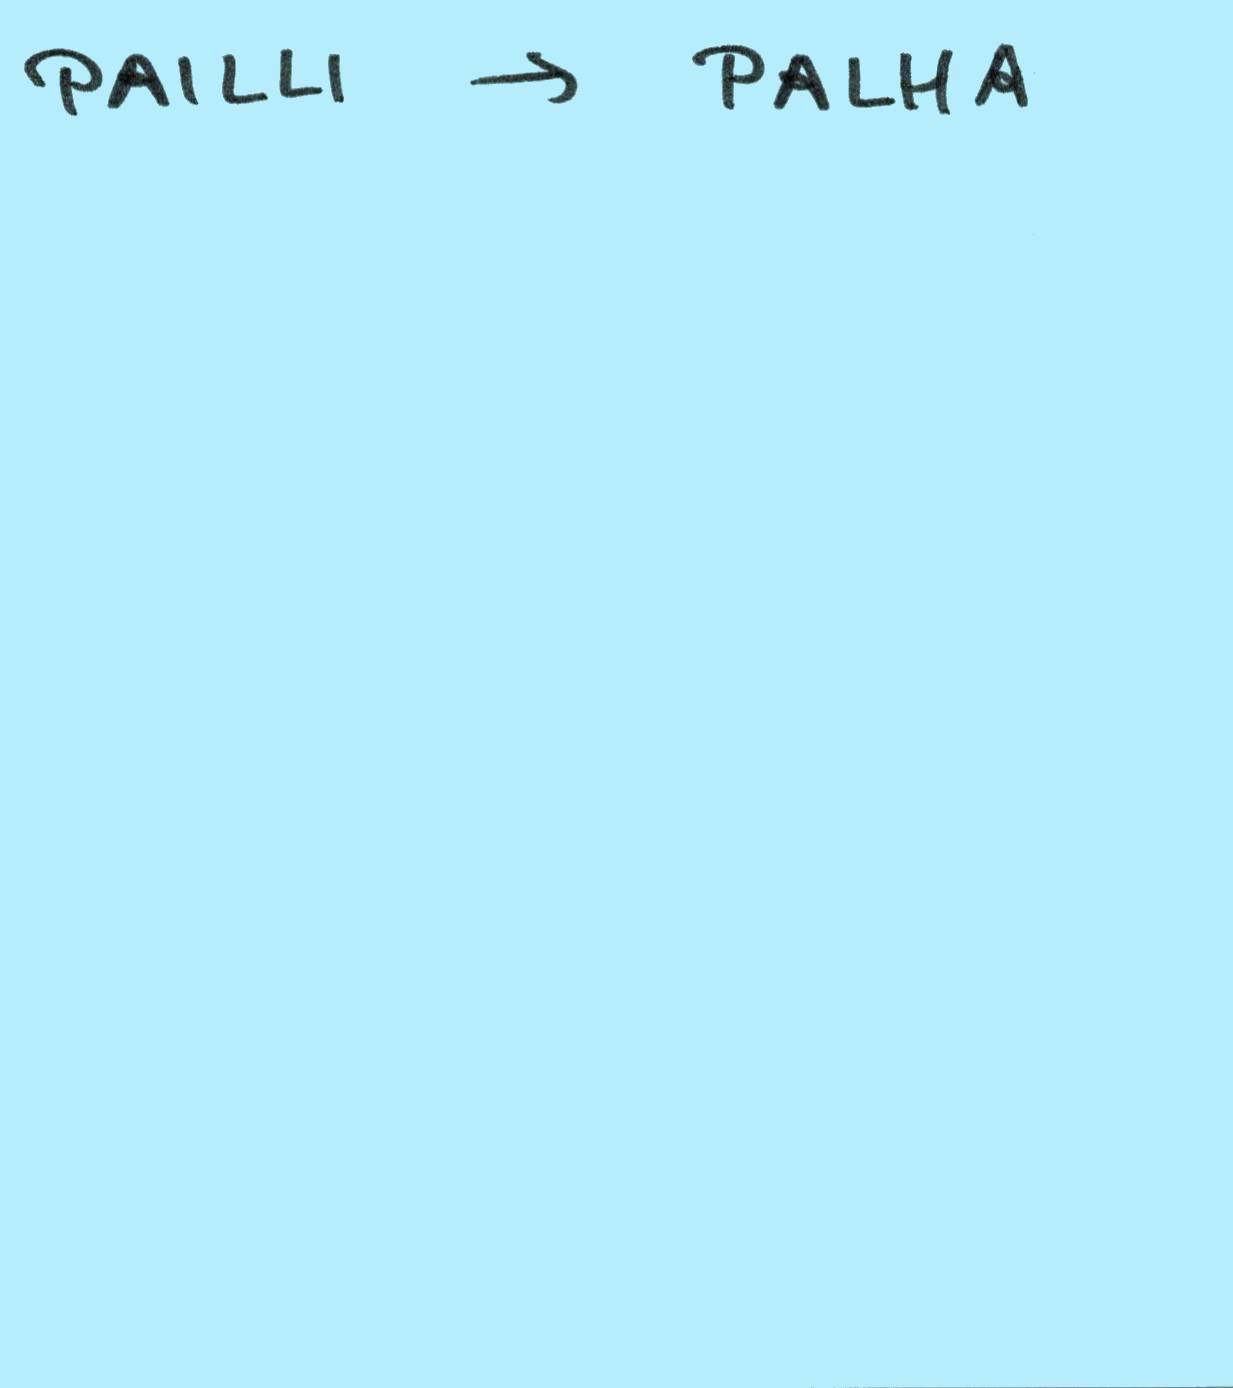 PAILLI → PALHA